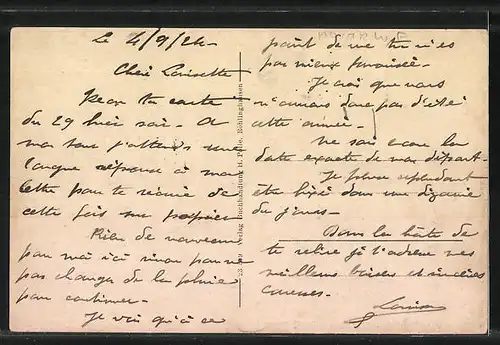 Le 4/9/24.
Chère Louisette
Reçu ta carte
du 29 hier soir. A
mon tour j'attends une
longue réponse à ma
lettre
cette fois sur papier
Rien de nouveau
par moi ici sinon
pas changer de la pluie
pour continuer.
Je vois qu'à ce
point de vue tu n'es
pas mieux
Je crois que nous
n'aurons donc pas d'été
cette année.
Ne sais encore la
date exacte de mon départ.
Je cependant
être fixé dans une dizaine
de jours.
Dans la hâte de
te relire je t'adresse mes
meilleurs baisers et sincères
caresses.
Louis
Verlag Buchhandlung H. Röhlinghausen